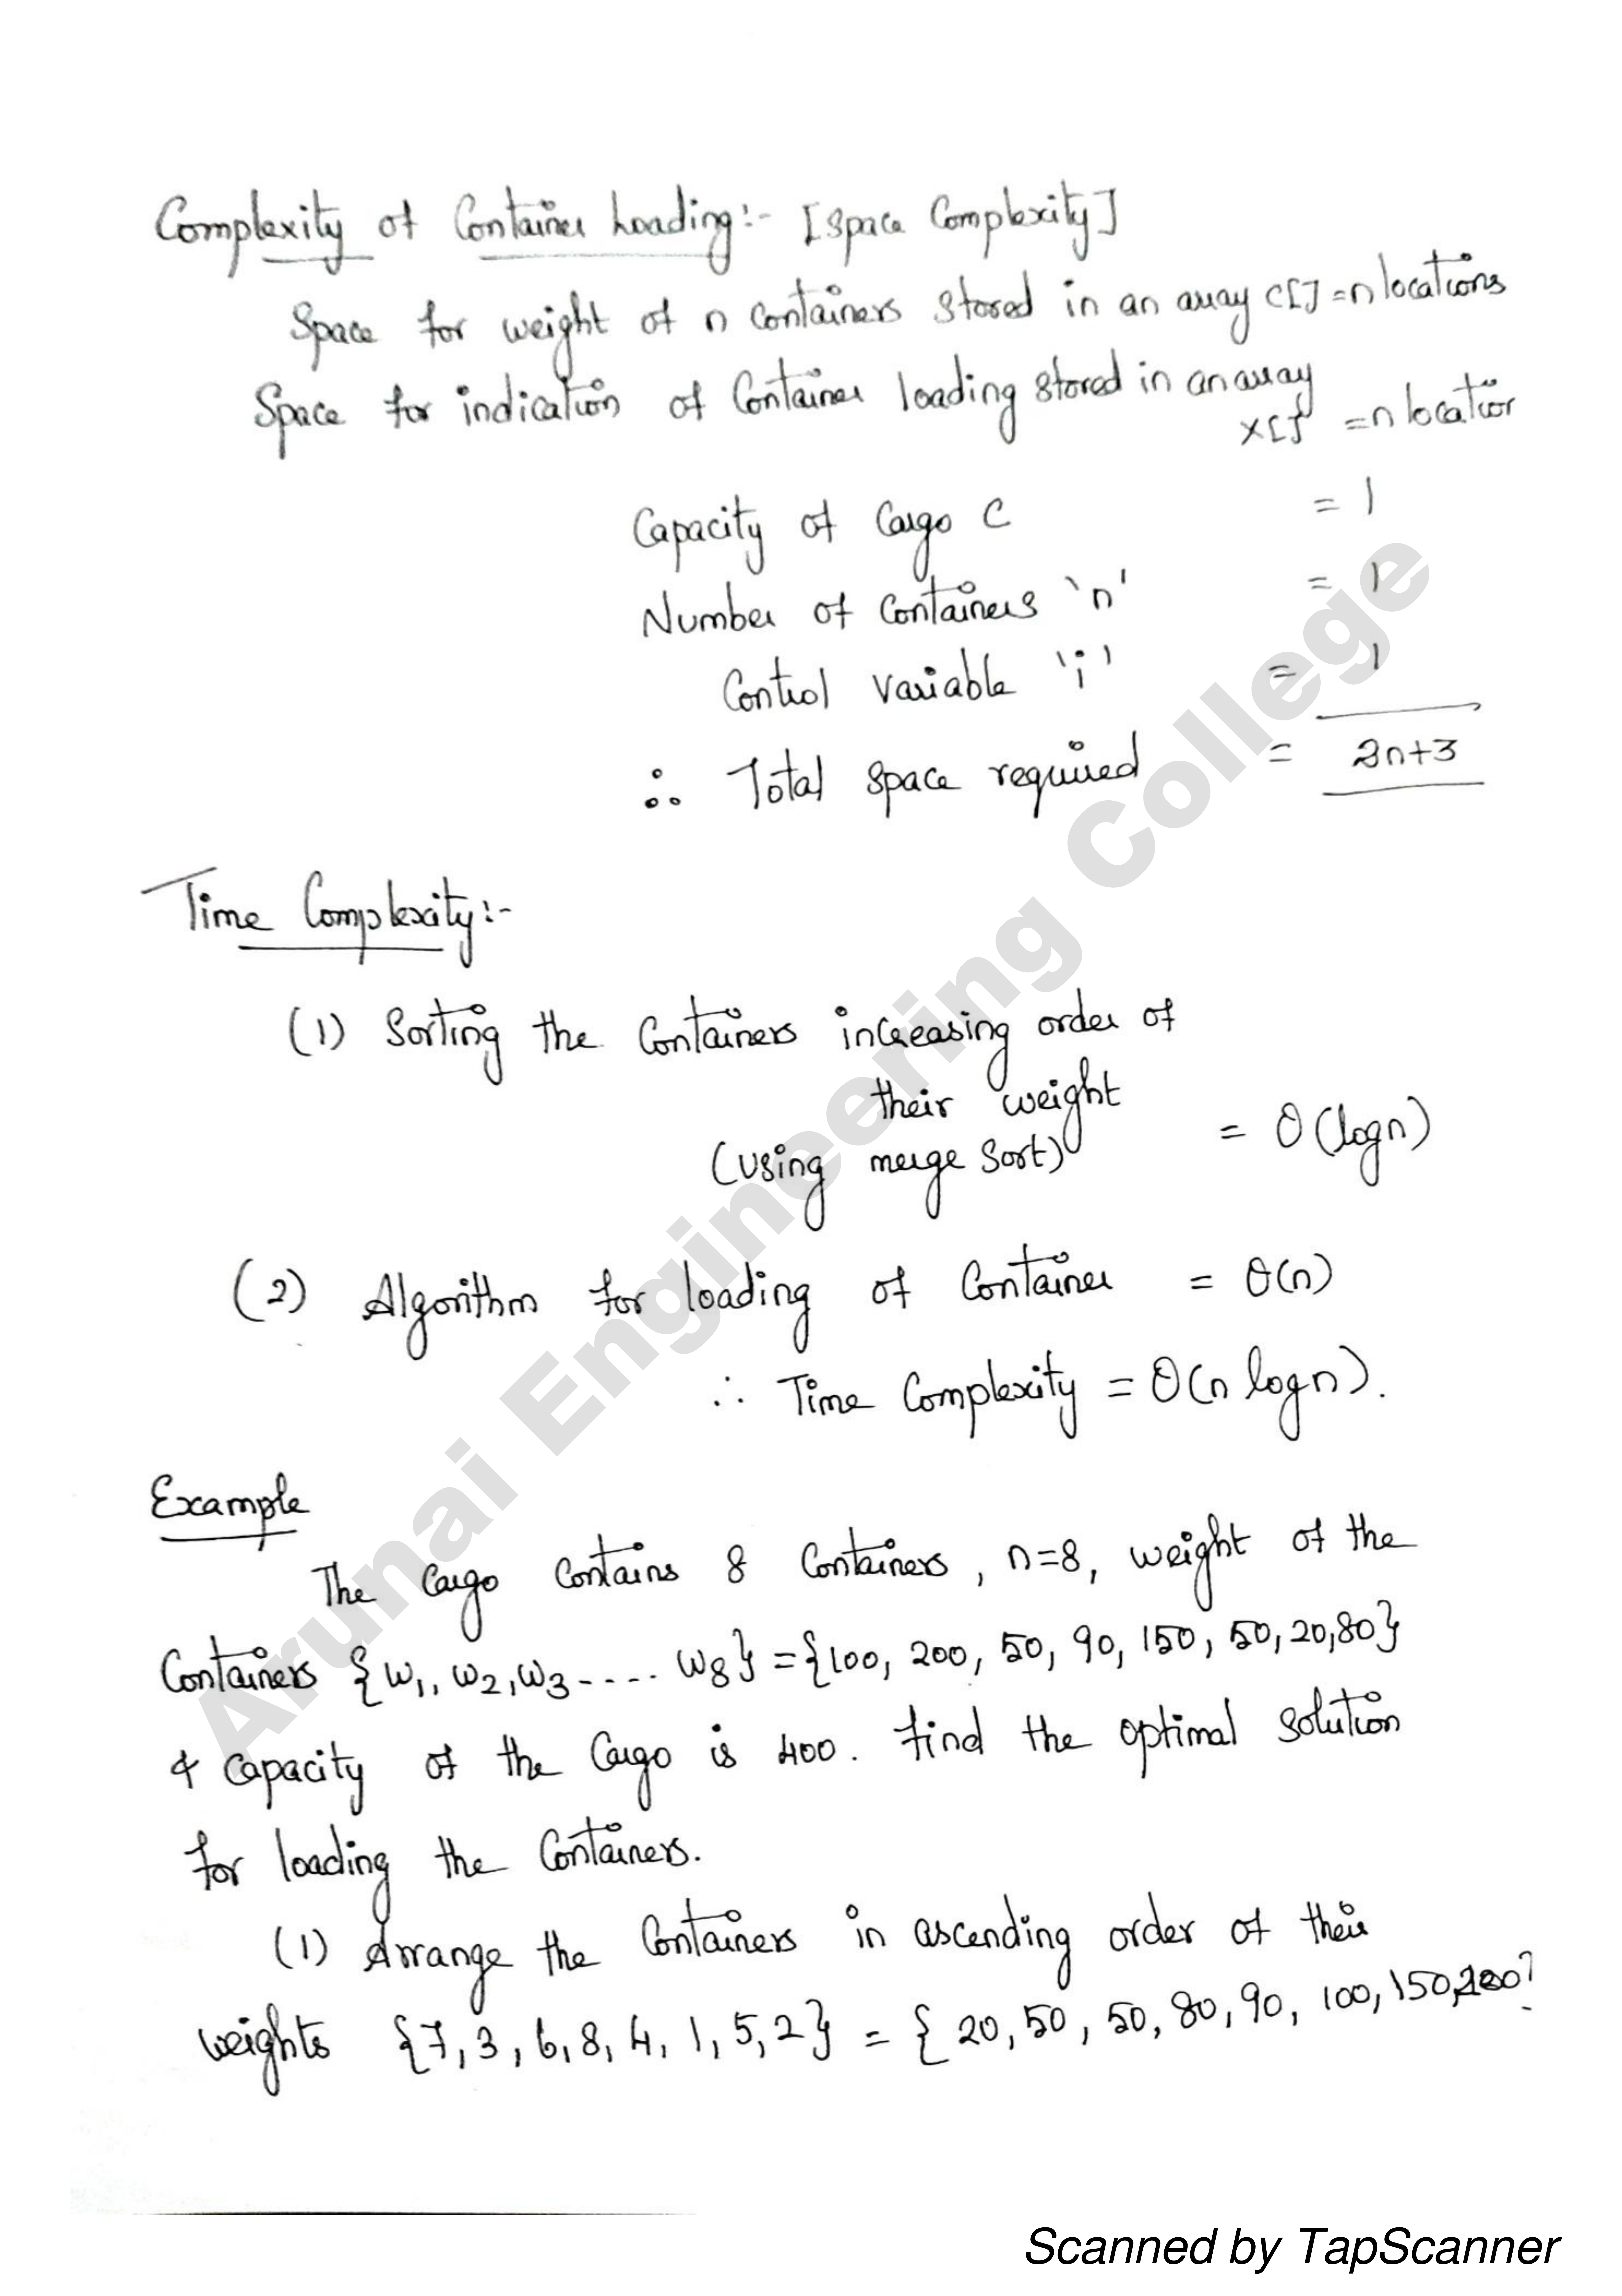 Complexity of Container Loading:- [Space Complexity]
Space for weight of n Containers stored in an array C[] = n locations
Space for indication of Container loading stored in an array
X[] = n location
Capacity of Cargo C = 1
Number of Containers 'n' = 1
Control variable 'i' = 1
∴ Total space required = 2n+3
Time Complexity:-
(1) Sorting the Containers increasing order of
their weight
(using merge sort) = O(logn)
(2) Algorithm for loading of Container = O(n)
∴ Time Complexity = O(n logn).
Example
The Cargo Contains 8 Containers, n=8, weight of the
Containers {w1, w2, w3 - .... w8} = {100, 200, 50, 90, 150, 50, 20, 80}
& capacity of the Cargo is 400. Find the optimal solution
for loading the Containers.
(1) Arrange the Containers in ascending order of their
weights {7, 3, 6, 8, 4, 1, 5, 2} = { 20, 50, 50, 80, 90, 100, 150, 200}
Arunai Engineering College
Scanned by TapScanner